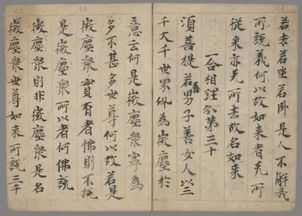 若去若坐若卧是人不解我
所說義何以故如来者无所
従来亦无所去故名如来
一合相理分第三十
須菩提若善男子善女人以三
千大千世界碎為微塵於
意云何是微塵衆寧為
多不甚多世尊何以故若是
微塵衆實有者佛則不說
是微塵衆所以者何佛說
微塵衆則非微塵衆是名
微塵衆世尊如来所說三千